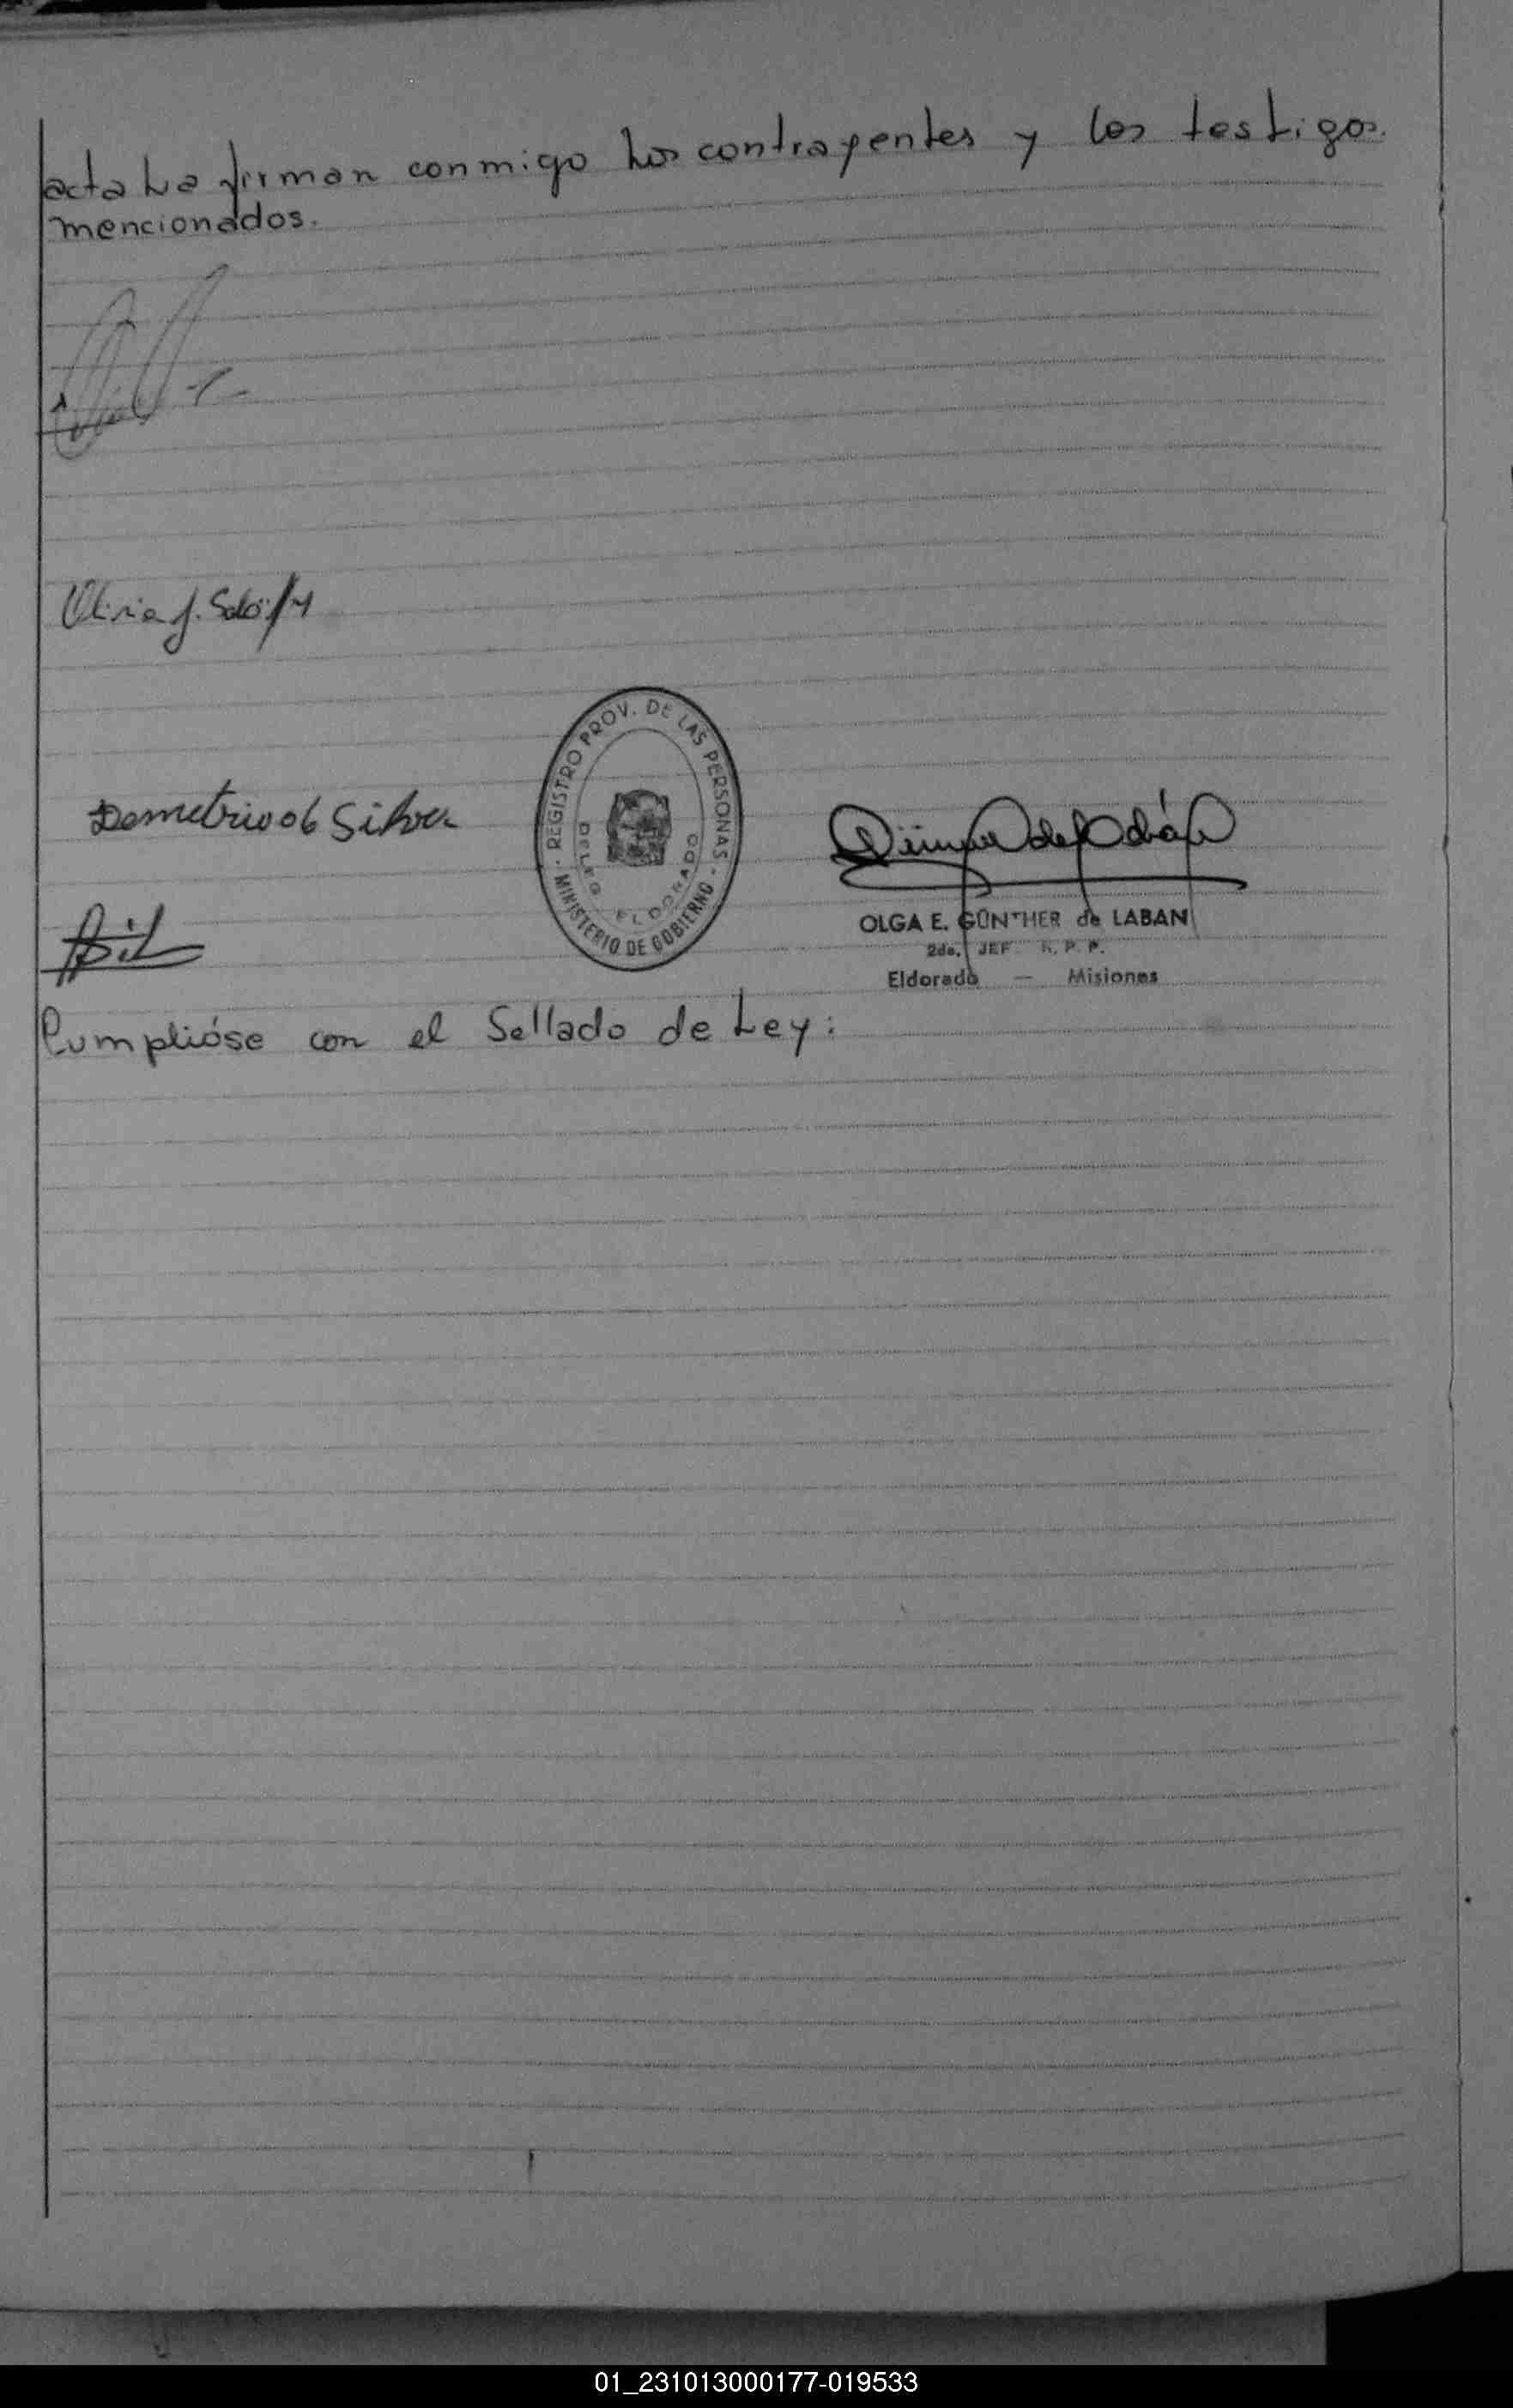 acta La firman conmigo Los contrayentes y los testigos.
mencionados.
Demetrio Silva
REGISTRO PROV. DE LAS PERSONAS
DELEG. ELDORADO
MINISTERIO DE GOBIERNO
OLGA E. GÜNTHER de LABAN
2da. JEF R. P. P.
Eldorado — Misiones
Cumplióse con el Sellado de Ley:
01_231013000177-019533